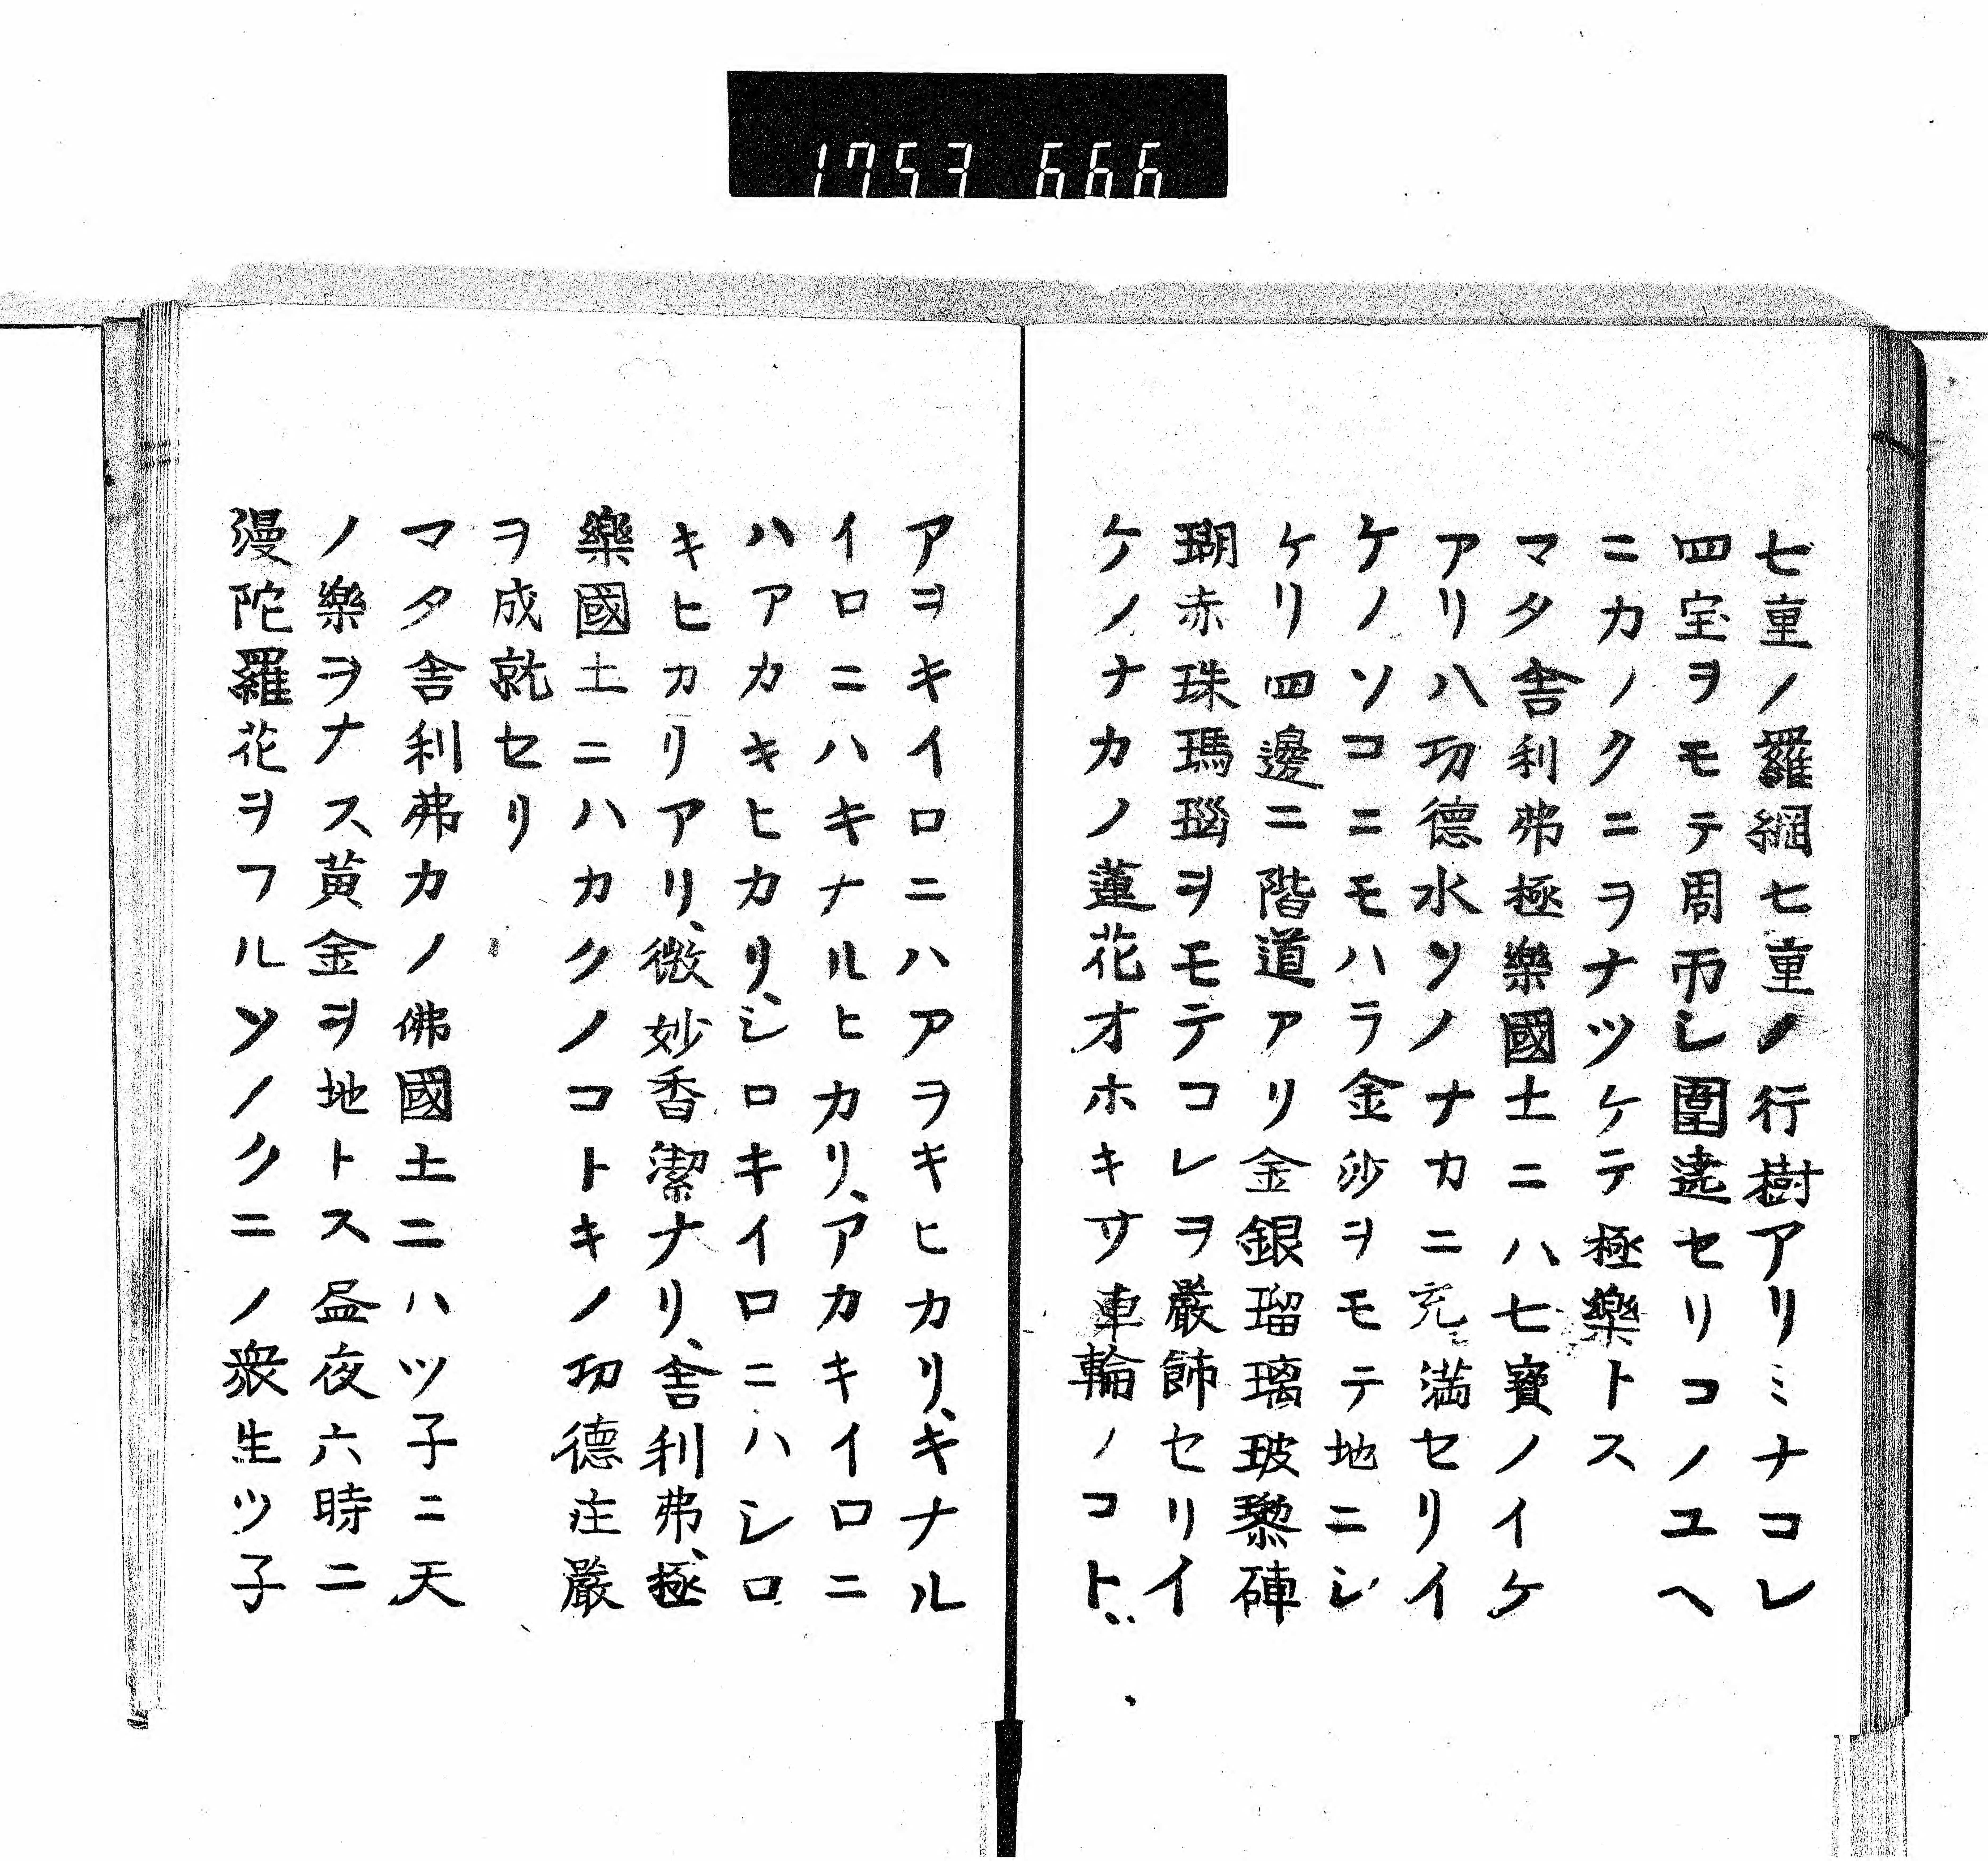 1753 666
七重ノ羅網七重ノ行樹アリミナコレ
四宝ヲモテ周帀シ圍遶セリコノユヘ
ニカノクニヲナツケテ極樂トス
マタ舎利弗極樂國土ニハ七寶ノイケ
アリ八功德水ソノナカニ充満セリイ
ケノソコニモハラ金沙ヲモテ地ニシ
ケリ四邊ニ階道アリ金銀瑠璃玻瓈硨
瑚赤珠瑪瑙ヲモテコレヲ嚴飾セリイ
ケノナカノ蓮花オホキサ車輪ノコトシ
アヲキイロニハアヲキヒカリ、キナル
イロニハキナルヒカリ、アカキイロニ
ハアカキヒカリ、シロキイロニハシロ
キヒカリアリ、微妙香潔ナリ、舎利弗、極
樂國土ニハカクノコトキノ功德庄嚴
ヲ成就セリ
マタ舎利弗カノ佛國土ニハツ子ニ天
ノ樂ヲナス黄金ヲ地トス昼夜六時ニ
漫陀羅花ヲフルソノクニノ衆生ツ子